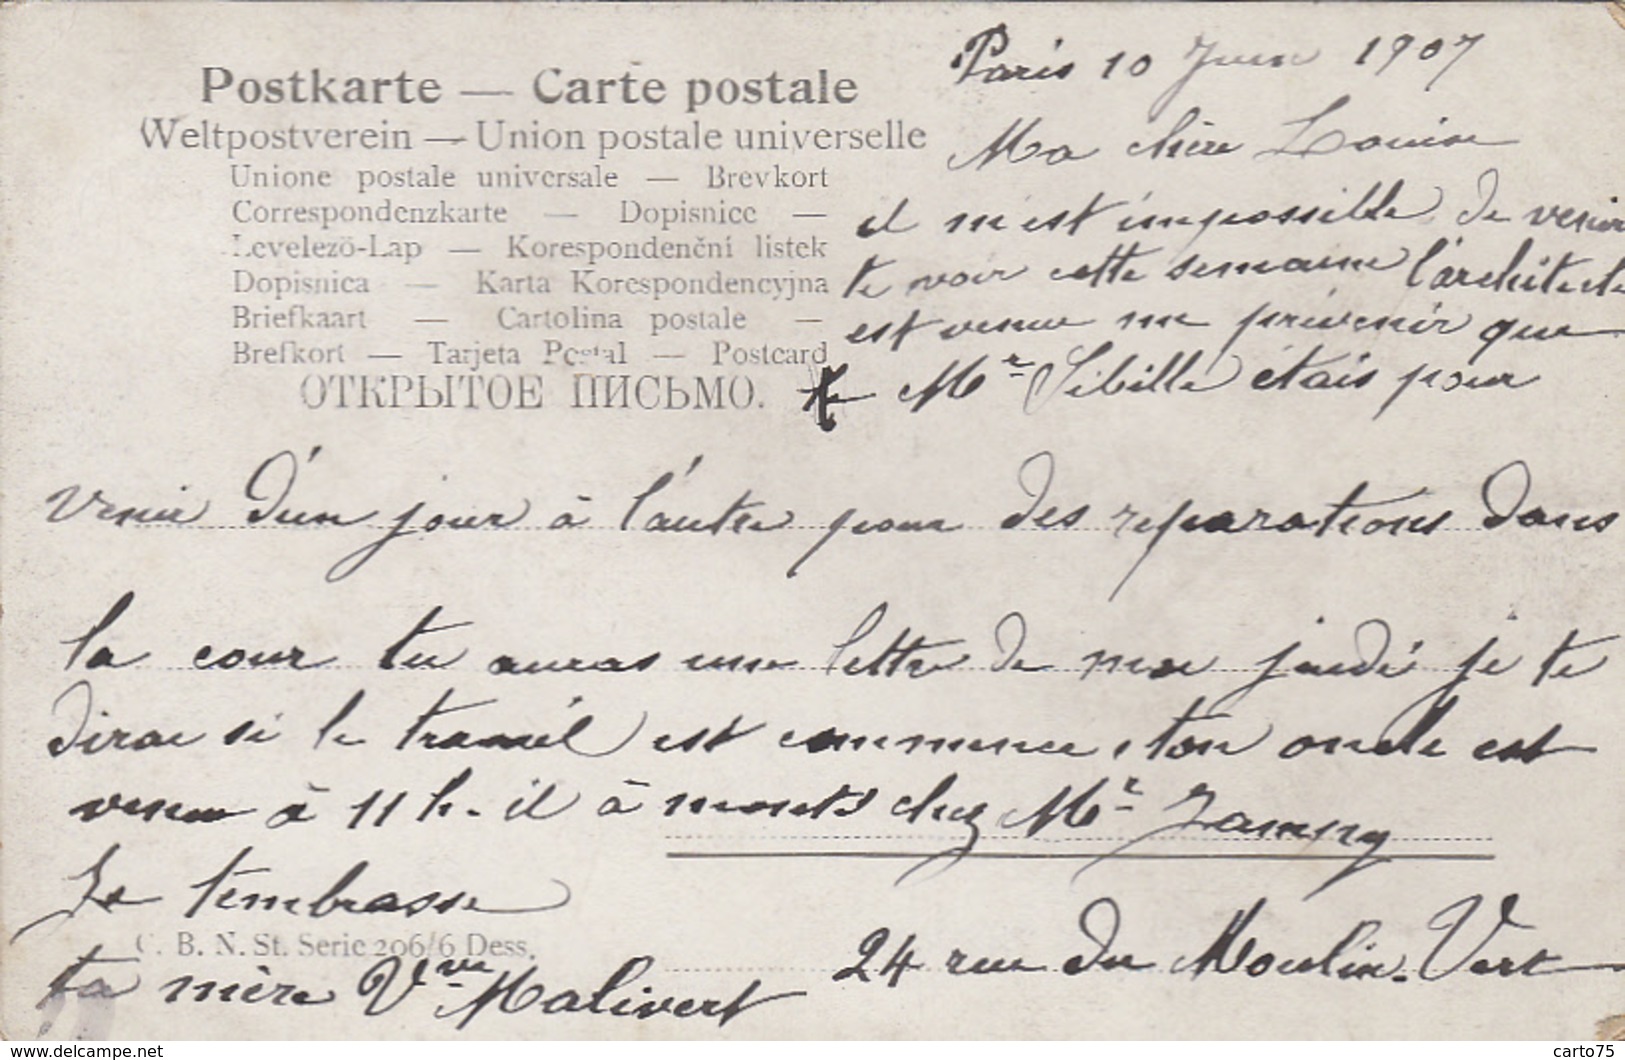 Paris 10 Juin 1907
Postkarte — Carte postale
Weltpostverein — Union postale universelle
Unione postale universale — Brevkort
Correspondenzkarte — Dopisnice —
Levelezö-Lap — Korespondenční listek
Dopisnica — Karta Korespondencyjna
Briefkaart — Cartolina postale —
Brefkort — Tarjeta Postal — Postcard
ОТКРЫТОЕ ПИСЬМО.
Ma chère Louise
il m'est impossible de venir
te voir cette semaine l'architecte
est venue me prévenir que
Mr Sibille étais pour
venir d'un jour à l'autre pour des reparations dans
la cour tu auras une lettre de moi jeudi je te
dirai si le travail est commence, ton oncle est
venu à 11 h. il à monté chez Mr Zampg
Je t'embrasse
C. B. N. St. Serie 206/6 Dess.
ta mère Vve Malivert
24 rue du Moulin-Vert
http://www.delcampe.net
carto75